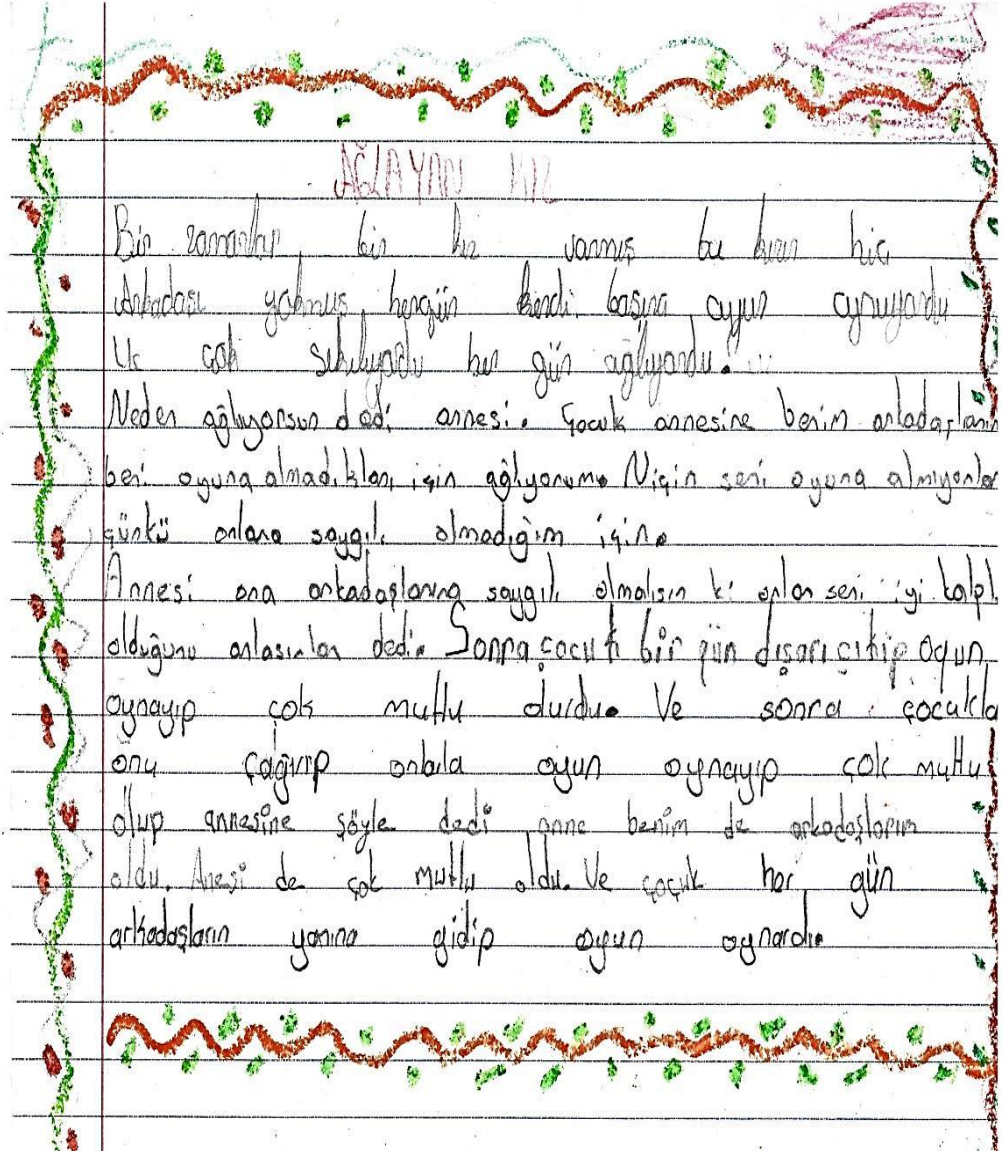 AĞLAYAN KIZ
Bir zamanlar, bir kız varmış bu kızın hiç
Arkadası yokmuş hergün kendi başına oyun oynuyordu
Ve çok sıkılıyordu her gün ağlıyordu.
Neden ağlıyorsun dedi annesi. Çocuk annesine benim arkadaşlarım
beni oyuna almadıkları için ağlıyorum. Niçin seni oyuna almıyorlar
çünkü onlara saygılı olmadığım için.
Annesi ona arkadaşlarına saygılı olmalısın ki onlar seni iyi kalpli
olduğunu anlasınlar dedi. Sonra çocuk bir gün dışarı çıkıp oyun
oynayıp çok mutlu olurdu. Ve sonra çocukla
onu çağırıp onbıla oyun oynayıp çok mutlu
olup annesine şöyle dedi anne benim de arkadaşlarım
oldu. Anesi de çok mutlu oldu. Ve çoçuk her gün
arkadaşların yanına gidip oyun oynardı.